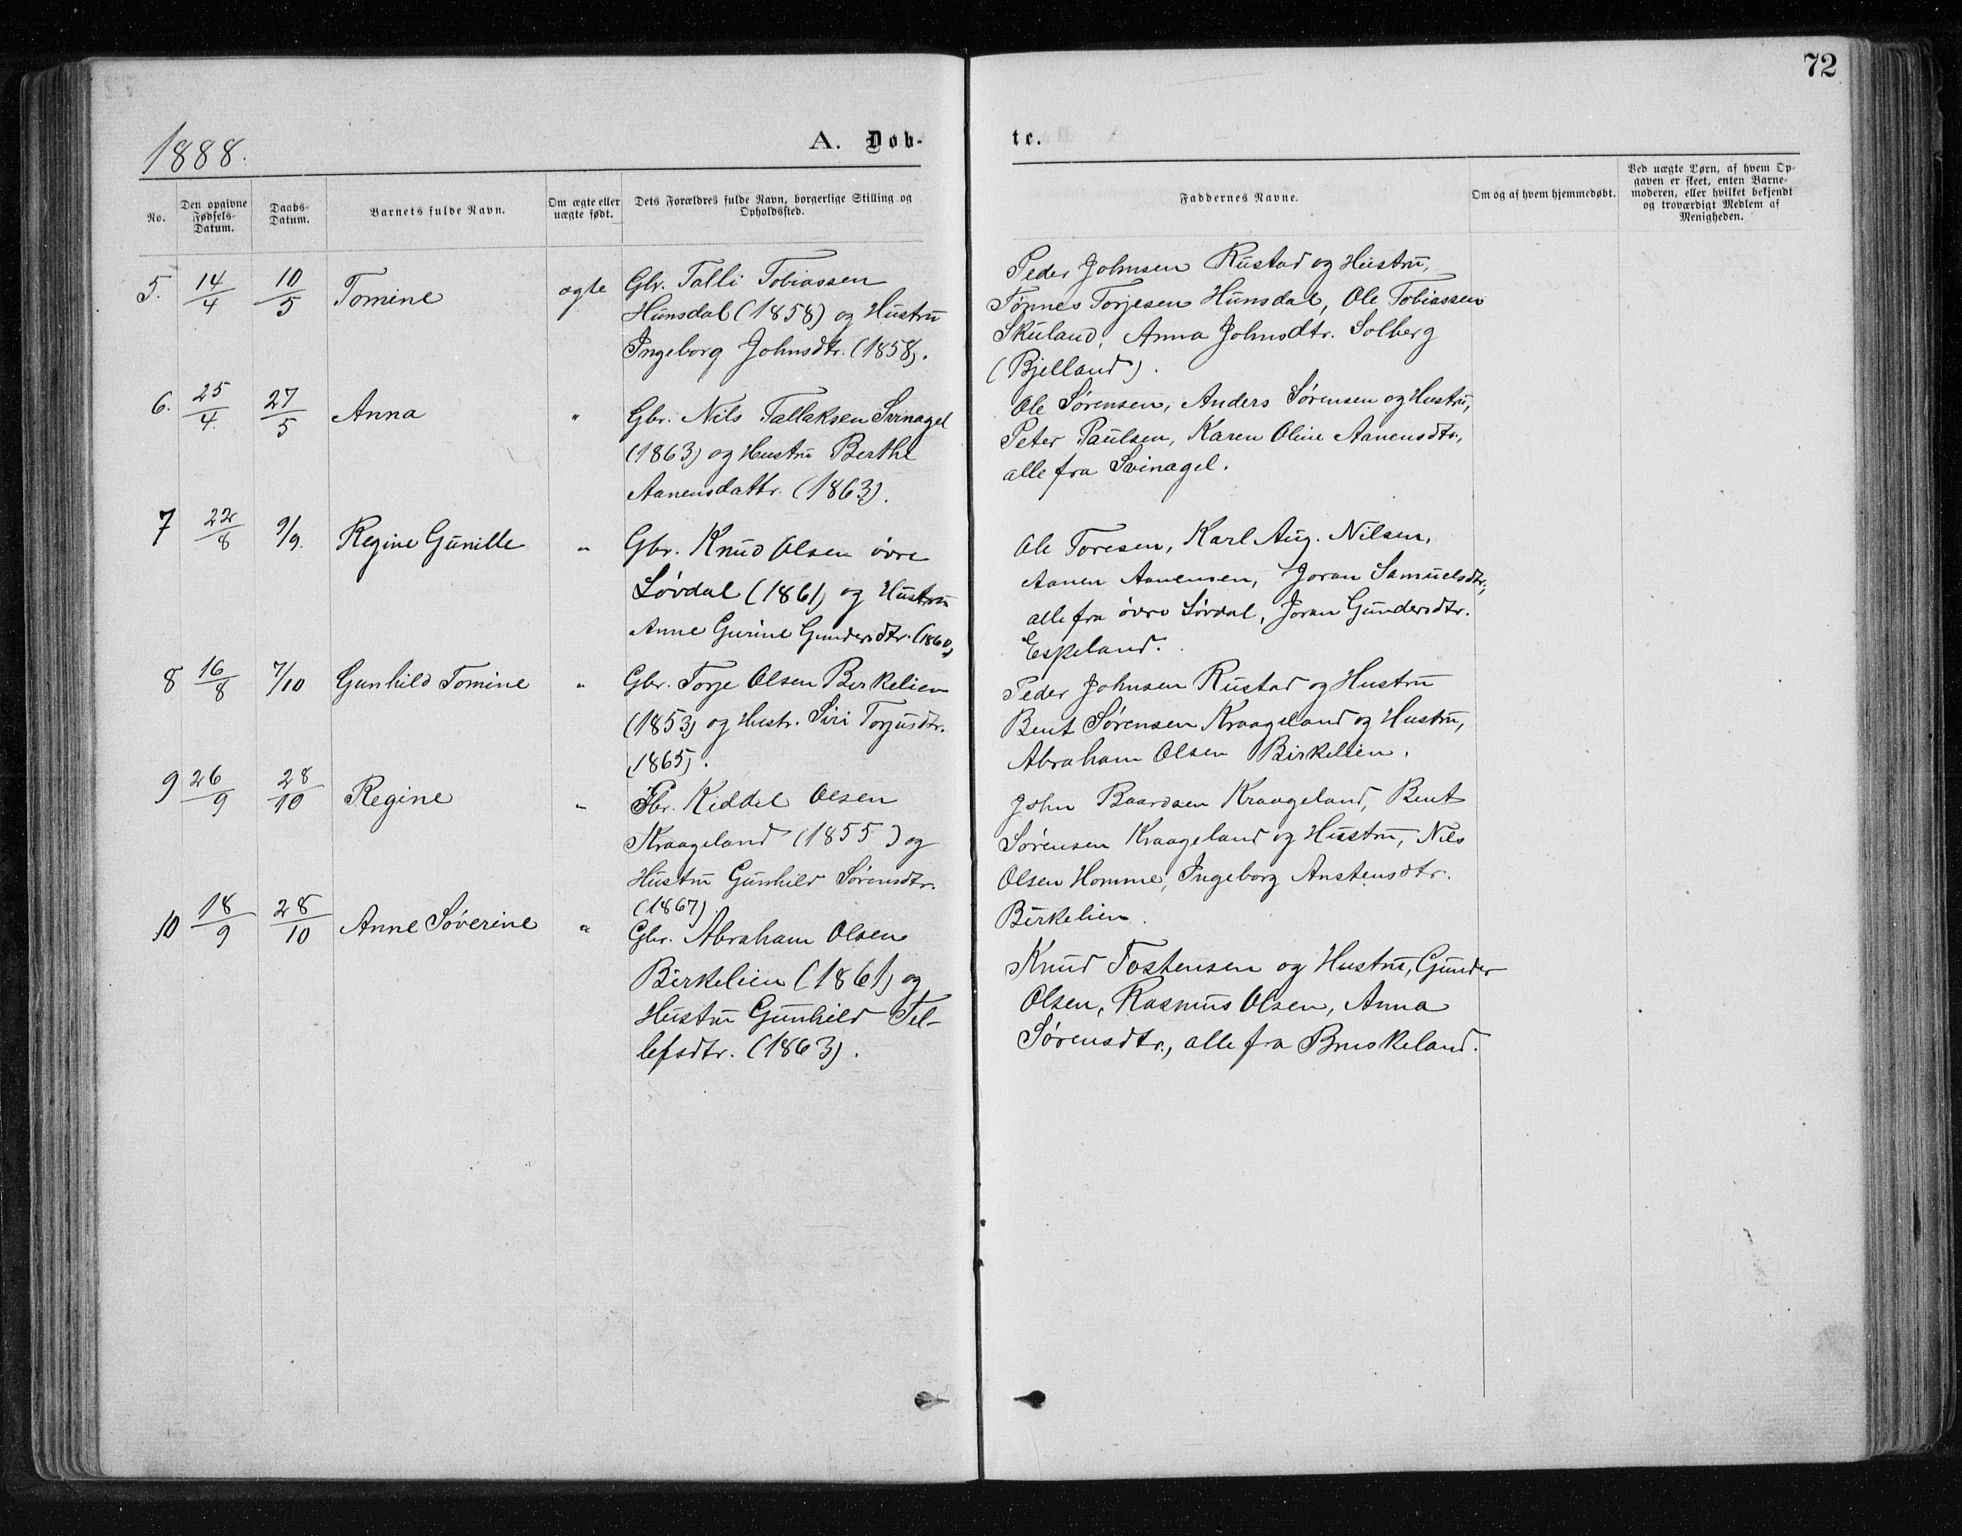 72
1888.
A. Døb-
te.
No.
Den opgivne
Fødsels-
Datum.
Daabs-
Datum.
Barnets fulde Navn.
Om ægte eller
uægte født.
Dets Forældres fulde Navn, borgerlige Stilling og
Opholdssted.
Faddernes Navne.
Om og af hvem hjemmedøbt.
Ved uægte Børn, af hvem Op-
gaven er skeet, enten Barne-
moderen, eller hvilket bekjendt
og troværdigt Medlem af
Menigheden.
5. 14/4 10/5 Tomine ægte Gbr. Talli Tobiassen
Hunsdal (1858) og Hustru
Ingeborg Johnsdtr. (1858).
Peder Johnsen Rustad og Hustru,
Tønnes Torjesen Hunsdal, Ole Tobiassen
Skuland, Anna Johnsdtr. Solberg
(Bjelland).
6. 25/4 27/5 Anna " Gbr. Nils Tallaksen Svinagel
(1863) og Hustru Berthe
Aanensdattr. (1863).
Ole Sørensen, Anders Sørensen og Hustru,
Peter Paulsen, Karen Oline Aanensdtr.,
alle fra Svinagel.
7 22/8 9/9. Regine Gunille " Gbr. Knud Olsen øvre
Løvdal (1861) og Hustru
Anne Gurine Gundersdtr. (1860)
Ole Toresen, Karl Aug. Nilsen,
Aanen Aanensen, Joran Samuelsdtr.,
alle fra øvre Løvdal, Joran Gundersdtr.
Espeland.
8 16/8 7/10 Gunhild Tomine " Gbr. Torje Olsen Birkelien
(1853) og Hustr. Siri Torjusdtr.
(1865).
Peder Johnsen Rustad og Hustru
Bent Sørensen Kraageland og Hustru,
Abraham Olsen Birkelien.
9 26/9 28/10 Regine " Gbr. Kiddel Olsen
Kraageland (1855) og
Hustru Gunhild Sørensdtr.
(1867)
John Baardsen Kraageland, Bent
Sørensen Kraageland og Hustru, Nils
Olsen Homme, Ingeborg Anstensdtr.
Birkelien.
10 18/9 28/10 Anne Søverine " Gbr. Abraham Olsen
Birkelien (1861) og
Hustru Gunhild Tel-
lefsdtr. (1863).
Knud Tostensen og Hustru, Gunder
Olsen, Rasmus Olsen, Anna
Sørensdtr., alle fra Bruskeland.